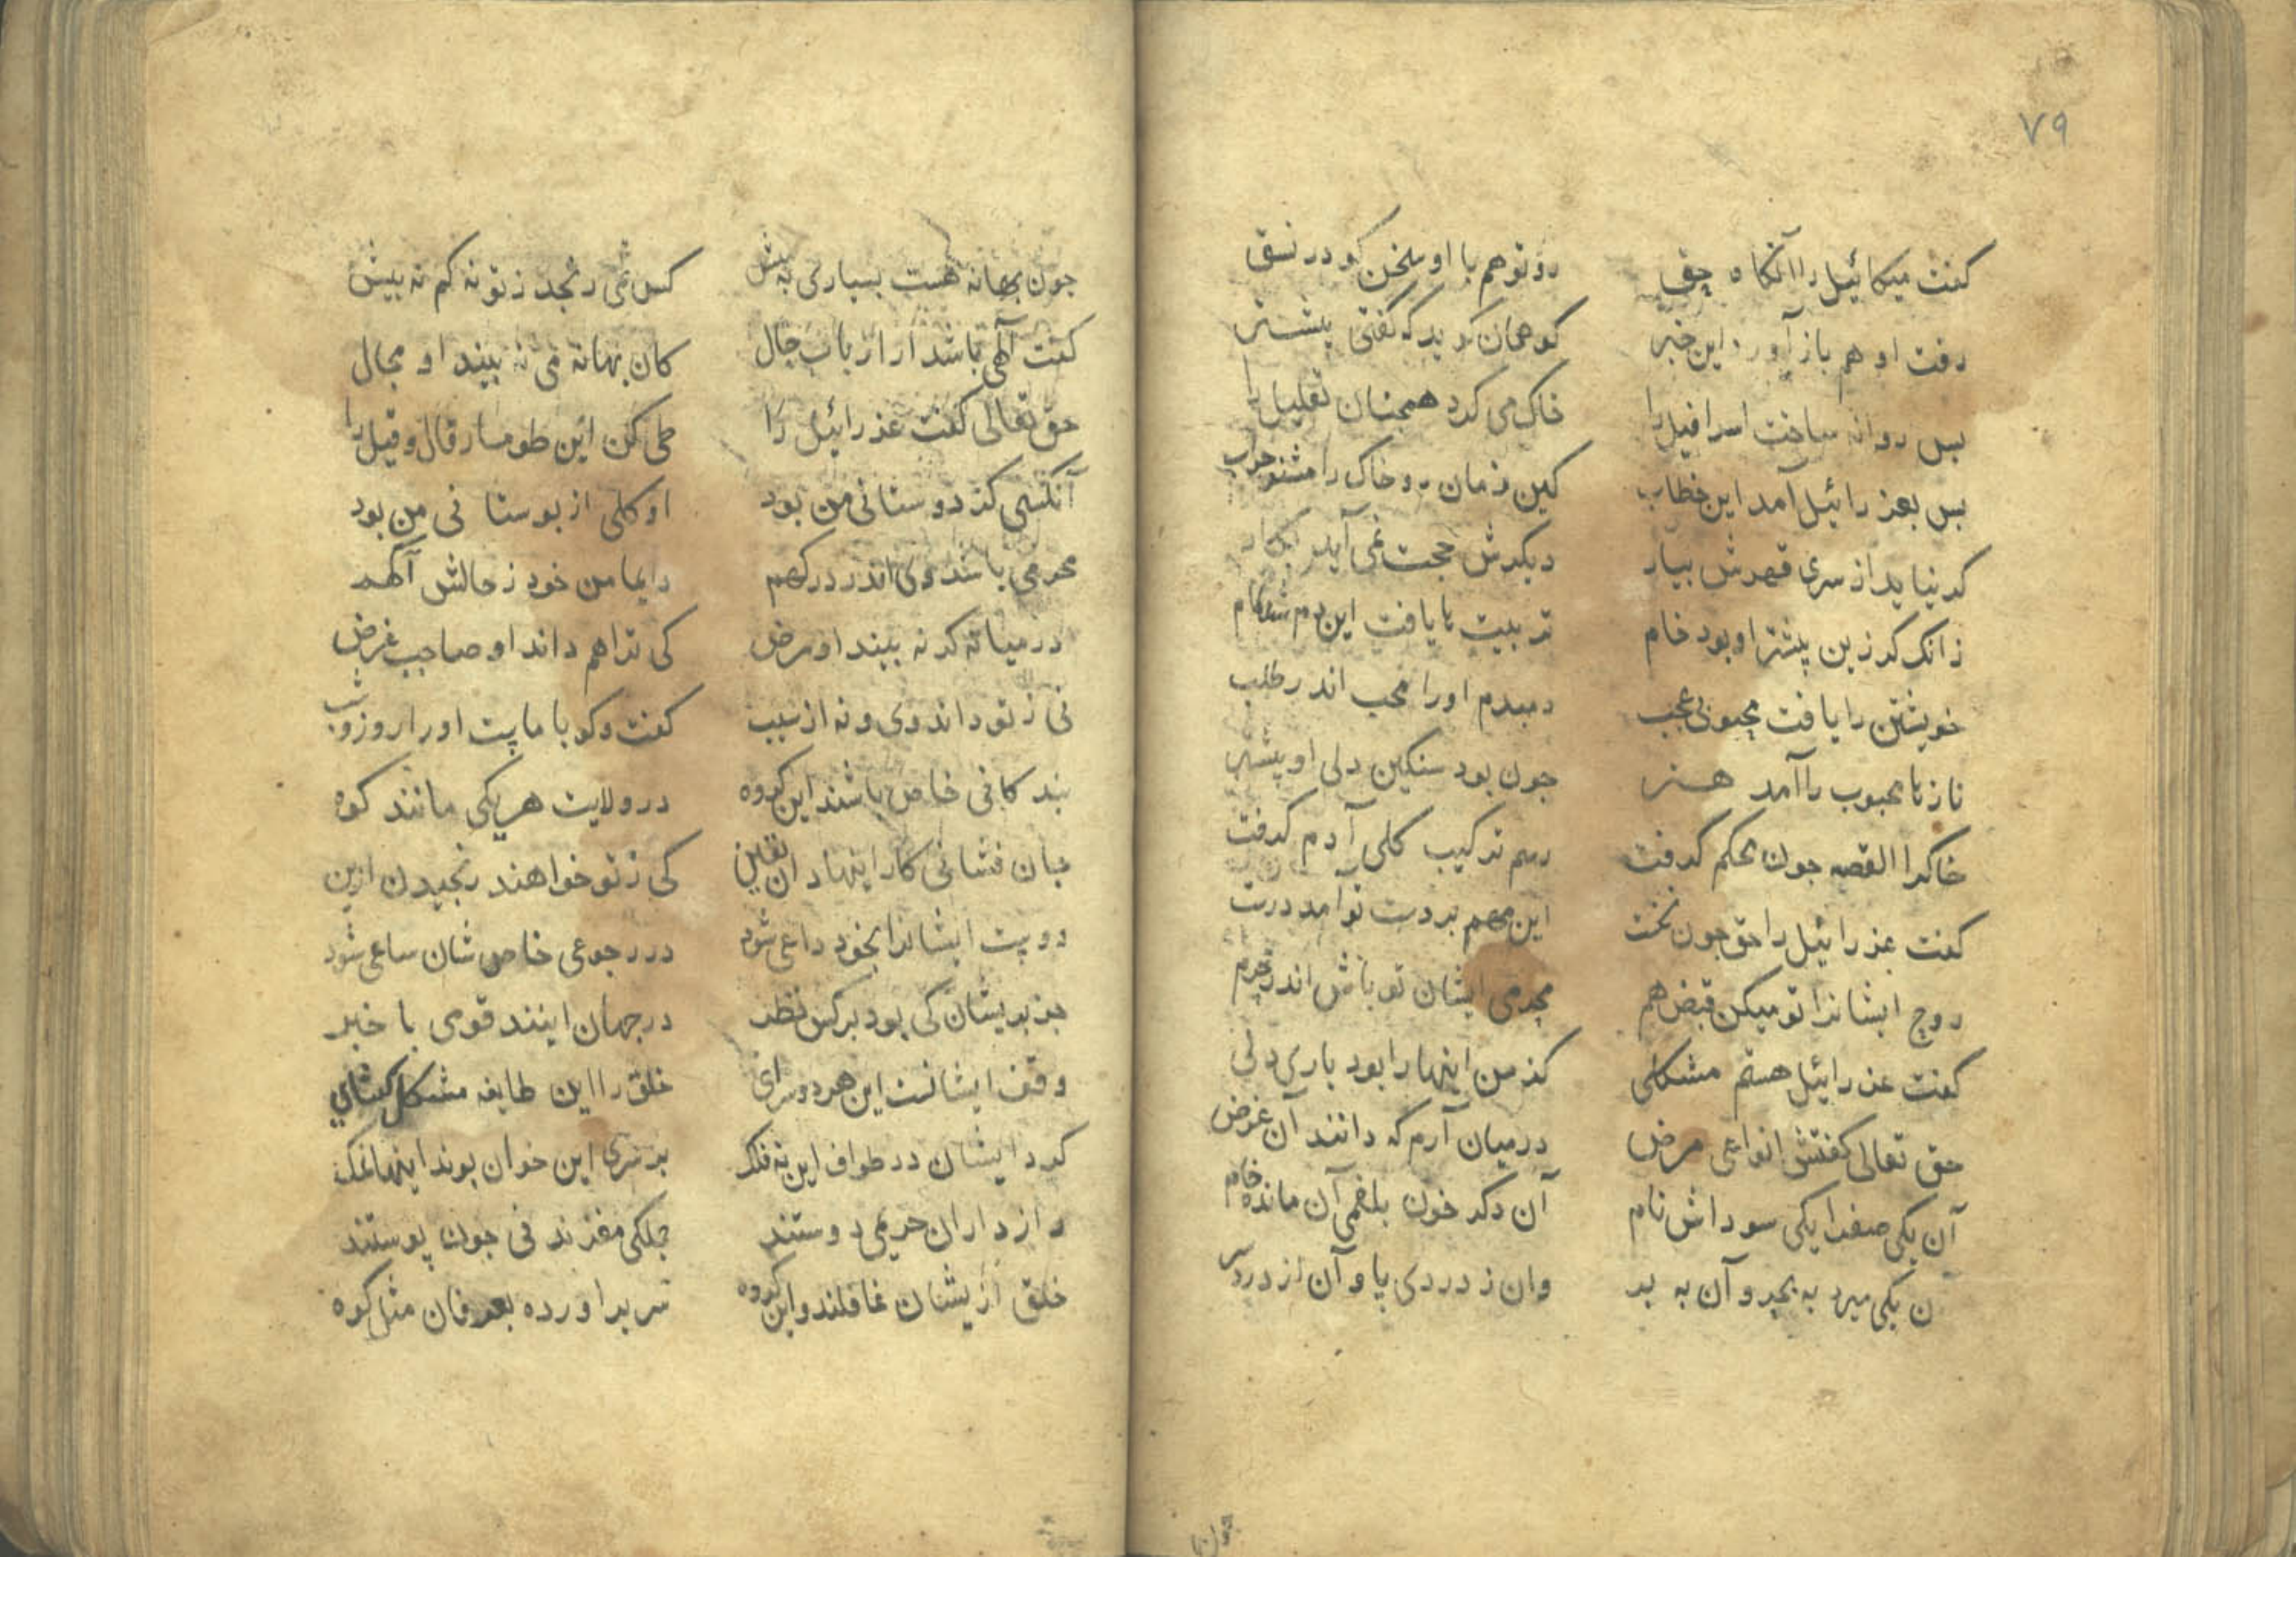 ۷۹
کفت میکائیل را آنکاه حق رو تو هم با او سخن کو در نسق
رفت او هم باز آورد این خبر کو همان کوید که گفتی پیشتر
بس روانه ساخت اسرافیل را خاک می کرد همچنان تقلیل را
بس بعزرائیل آمد این خطاب کین زمان رو خاک را مشنو جواب
کر نیاید از سری قهرش بیار دیکرش حجت نمی آید بکار
زانک کر زین پیشتر او بود خام تربیت تا یافت این دم شد تمام
خویشتن را یافت محبوبی عجب دمبدم او را محب اندر طلب
ناز تا محبوب را آمد هنر جون بود سنکین دلی او بیشتر
خاکرا القصه جون محکم کرفت رسم ترکیب کلی آدم کرفت
کفت عزرائیل را حق جون نخست این مهم بر دست تو آمد درست
روح ایشانرا تو میکن قبض هم محرمی ایشان تو باش اندر حرم
کفت عزرائیل هستم مشکلی کز من اینها را بود باری دلی
حق تعالی کفتش انواعی مرض درمیان آرم که دانند آن غرض
آن یکی صفرا یکی سوداش نام آن دکر خون بلغمی آن مانده خام
ن یکی میرد به بحر و آن به بر وان ز دردی پا و آن از درد سر
جون
جون بهانه هست بسیاری به پیش کس نمی رنجد ز تو نه کم نه بیش
کفت آلهی باشد ار ارباب حال کان بهانه می نه بیند او مجال
حق تعالی کفت عزرائیل را طی کن این طومار قال و قیل را
آنکسی کز دوستانی من بود او کلی از بوستانی من بود
محرمی باشد وی اندر درکهم دایما من خود ز حالش آکهم
درمیانه کر نه بیند او مرض کی ترا هم داند او صاحب غرض
نی ز تو داند وی و نه از سبب کفت وکو با ماست او را روز وشب
بندکانی خاص باشند این کروه در ولایت هر یکی مانند کوه
جان فشانی کار اینها دان یقین کی ز تو خواهند رنجیدن ازین
دوست ایشانرا بخود داعی شود در رجوعی خاص شان ساعی شود
جز بریشان کی بود بر کس نظر در جهان اینند قومی با خبر
وقف ایشانست این هر دو سرای خلق را این طایفه مشکل کشای
کرد ایشان در طواف این نه فلک بر سری این خوان بوند اینها نمک
راز داران حریمی دوستند جملکی مغزند نی جون پوستند
خلق ازیشان غافلند و این کروه سر برآورده بعرفان مثل کوه